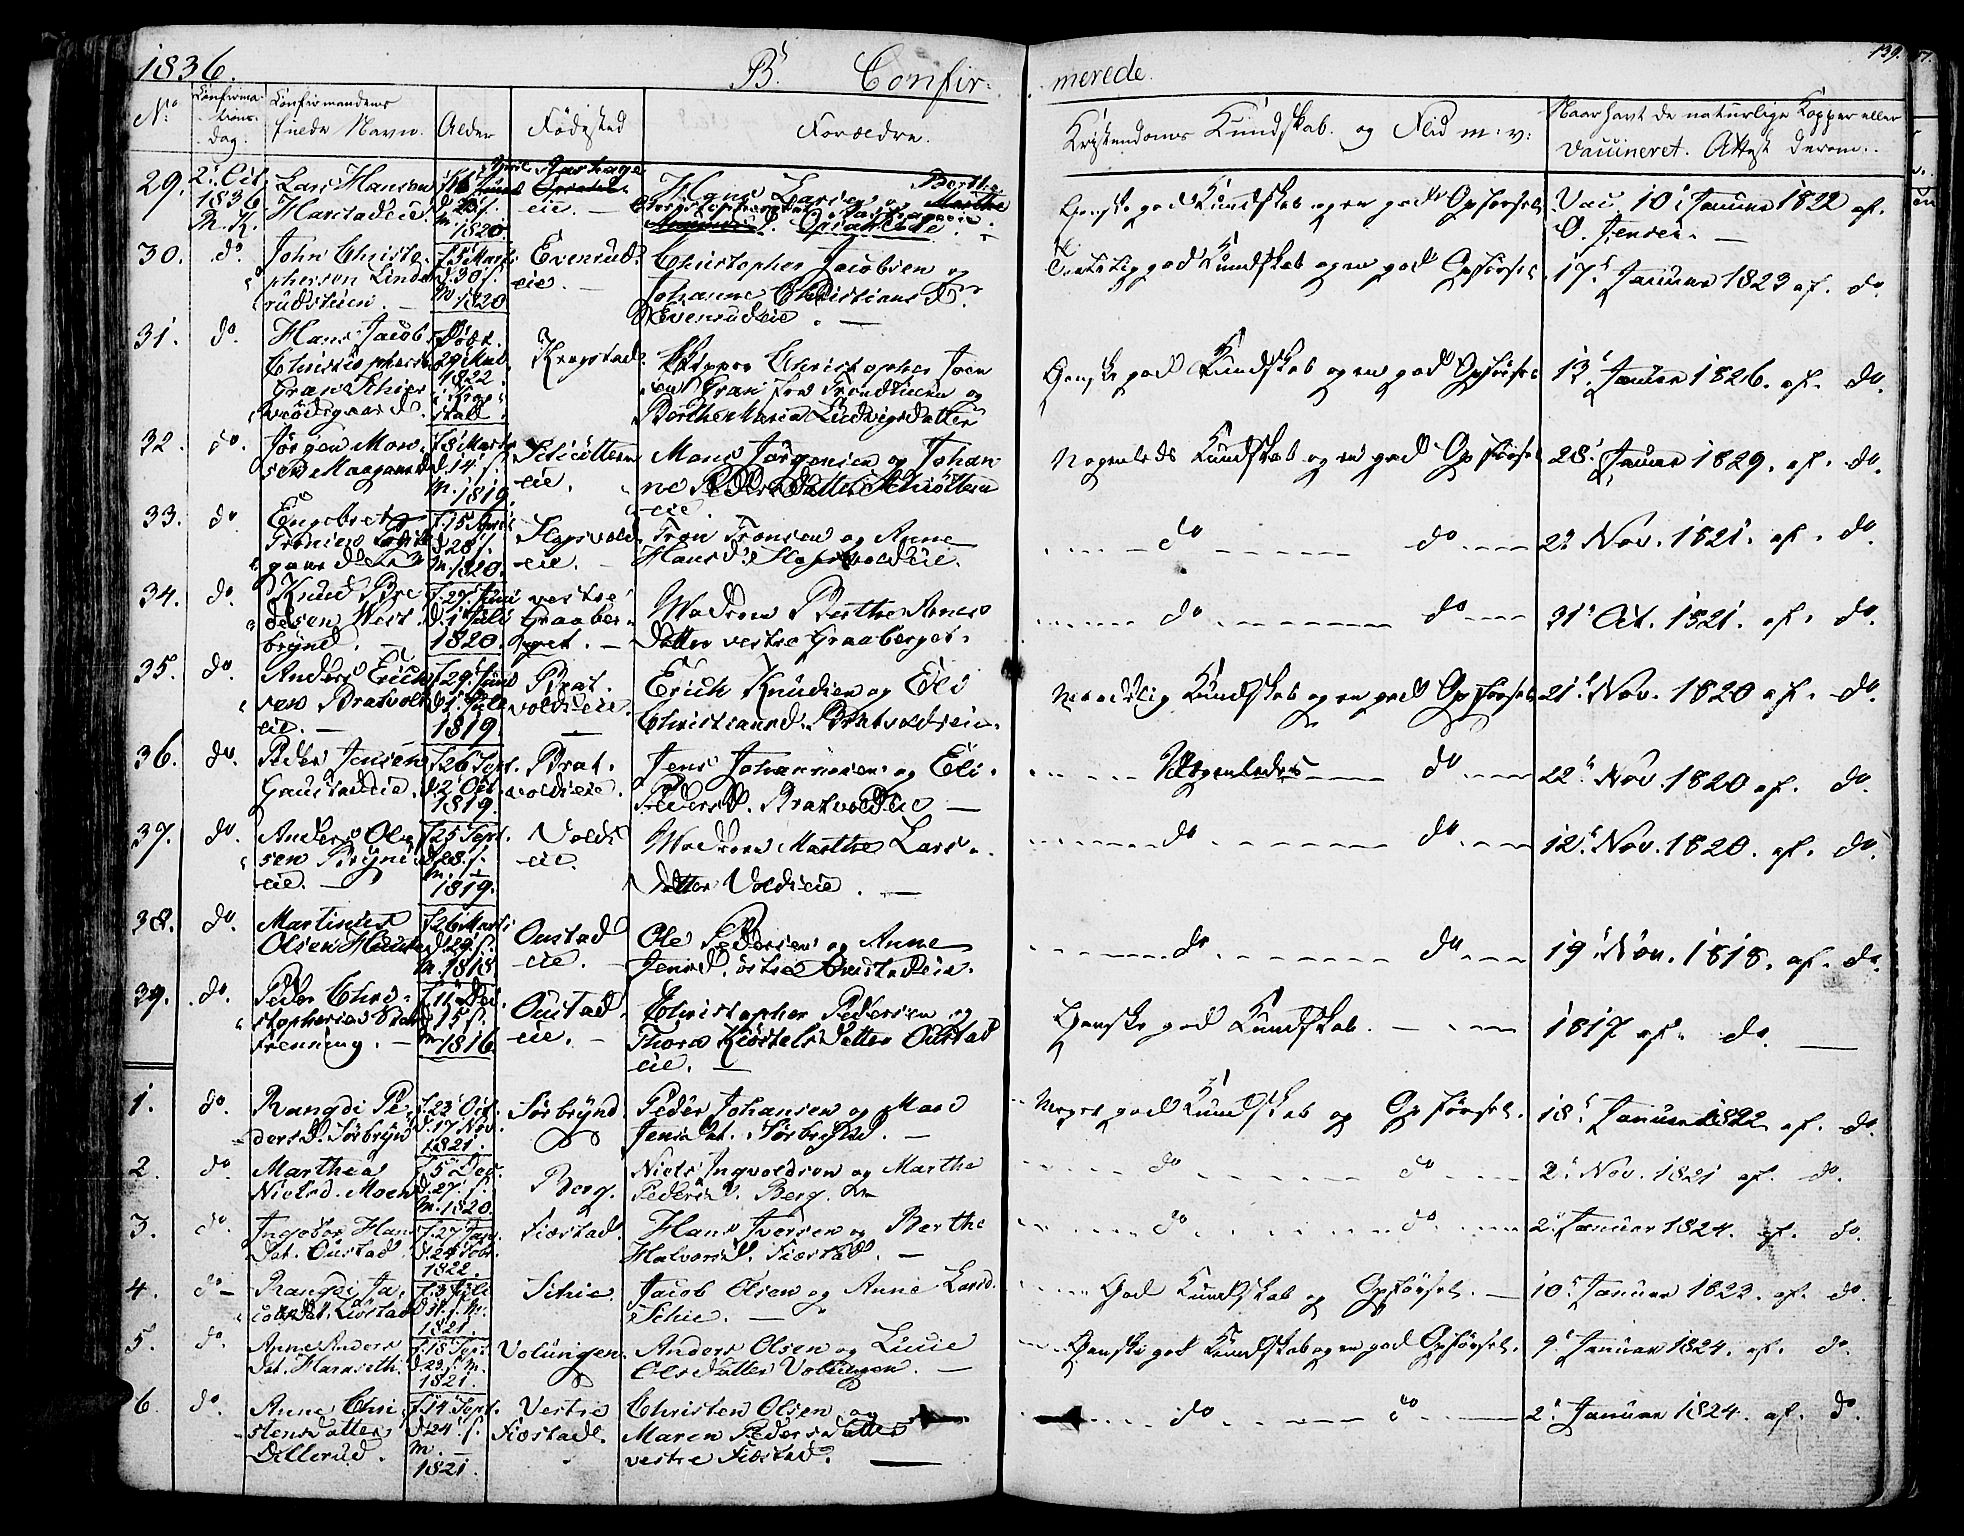 1836.
B. Confir-
merede.
139.
No
Confirma-
tions-
dag.
Confirmandens
fulde Navn.
Alder
Fødested
Forældre.
Kristendoms Kundskab og Flid m: v:
Naar havt de naturlige Kopper eller
vaccineret. Attest derom.
29. 2 Oct. 1836
Lars Hansen
Harstadeie.
1820
eie.
Hans Larsen og Berthe
Ganske god Kundskab og en god Opførsel
Vac. 10 Januar 1822 af.
O. Jensen.
30. do.
John Christo-
phersen Linde-
rudsteien.
f. 5 Marts
d. 30 s.
m. 1820
Evenrud-
eie.
Christopher Jacobsen og
Johanne Christians D.
Evenrudeie.
god Kundskab og en god Opførsel
17 Januar 1823 af. do.
31. do.
Hans Jacob
Christophersen
Gran
1822
Krogstad
Christopher
Gran fra Trondhiem og
Berthe Maria Ludvigsdatter
Ganske god Kundskab og en god Opførsel
13. Januar 1826. af. do.
32. do.
Jørgen Mon-
sen
f. 8 Marts
d. 14 s.
m. 1819.
eie.
Mons Jørgensen og Johan-
ne Pedersdatter
eie.
Nogenleds Kundskab og en god Opførsel
28. Januar 1829. af. do.
33. do.
Engebret
Tronsen
d. 28 s.
m. 1820.
eie.
Tron Tronsen og Anne
Hansd.
do do
22 Nov. 1821. af. do.
34. do.
Knud Pe-
dersen West-
brynd.
d. 1 Juli
1820.
vestre
Graaber-
get.
Madren Berthe Arnes-
datter vestre Graaberget.
do do
31 Oct. 1821. af. do.
35. do.
Anders Erich-
sen Bratvold-
eie.
1819.
Brat-
voldseie.
Erich Knudsen og Eli
Christiansd. Bratvoldseie.
Maadelig Kundskab og en god Opførsel
21 Nov. 1820 af. do.
36. do.
Peder Jensen
Gaustadeie.
f. 26 Sept.
d. 2 Oct.
1819.
Brat-
voldseie.
Jens Johannesen og Eli
Pedersd. Bratvoldeie
Nogenledes do
22 Nov. 1820 af. do.
37. do.
Anders Ole-
sen Brynd-
eie.
f. 25 Sept.
d. 28 s.
m.
1819.
Volds-
eie.
Madren Marthe Lars-
datter Voldseie.
do do
12 Nov. 1820. af. do.
38. do.
Martinus
Olsen
f. 26 Marts
d. 29 s.
m. 1818
Oustad
eie.
Ole Pedersen og Anne
Jensd. østre Oustadeie.
do do
19 Nov. 1818. af. do.
39. do.
Peder Chri-
stophersen
Frenning.
f. 11 Dec.
15 s.
m 1816.
Oustad-
eie.
Christopher Pedersen og
Thore Kiøstelsdatter Oustad
eie.
Ganske god Kundskab.
1817 af. do.
1. do.
Rangdi Pe-
dersd. Sørbrynd
f. 23 Oct.
d. 17 Nov.
1821.
Sørbrynd.
Peder Johansen og Mari
Jensdat. Sørbrynd.
Meget god Kundskab og Opførsel.
18 Januar 1822 af. do.
2. do.
Marthea
Nielsd. Moen
f. 5 Dec.
d. 27 s.
m. 1820.
Berg.
Niels Ingvoldsen og Marthe
Pedersd. Berg.
do do
2 Nov. 1821 af. do.
3. do.
Ingebor Hans-
dat. Oustad.
f. 27 Jan.
d. 24 Febr.
1822.
Fiæstad.
Hans Iversen og Berthe
Halvorsd. Fiæstad.
do do
2 Januar 1824. af. do.
4. do
Rangdi Ja-
cobsdat. Liøstad
f. 3 Juli
1821.
Schie.
Jacob Olsen og Anne Larsd.
Schie.
God Kundskab og Opførsel.
10 Januar 1823. af. do.
5. do.
Anne Anders-
dat. Haraseth.
f. 18 Sept.
d. 23 s. m.
1821.
Volungen.
Anders Olsen og Lucie
Olsdatter Volungen.
Ganske god Kundskab og en god Opførsel.
9 Januar 1824. af. do.
6. do.
Anne Chri-
stensdatter
Dellerud.
f. 14 Sept.
d. 24 s.
m.
1821.
Vestre
Fiæstad.
Christen Olsen og
Maren Pedersdatter
vestre Fiæstad.
do do
2 Januar 1824. af. do.